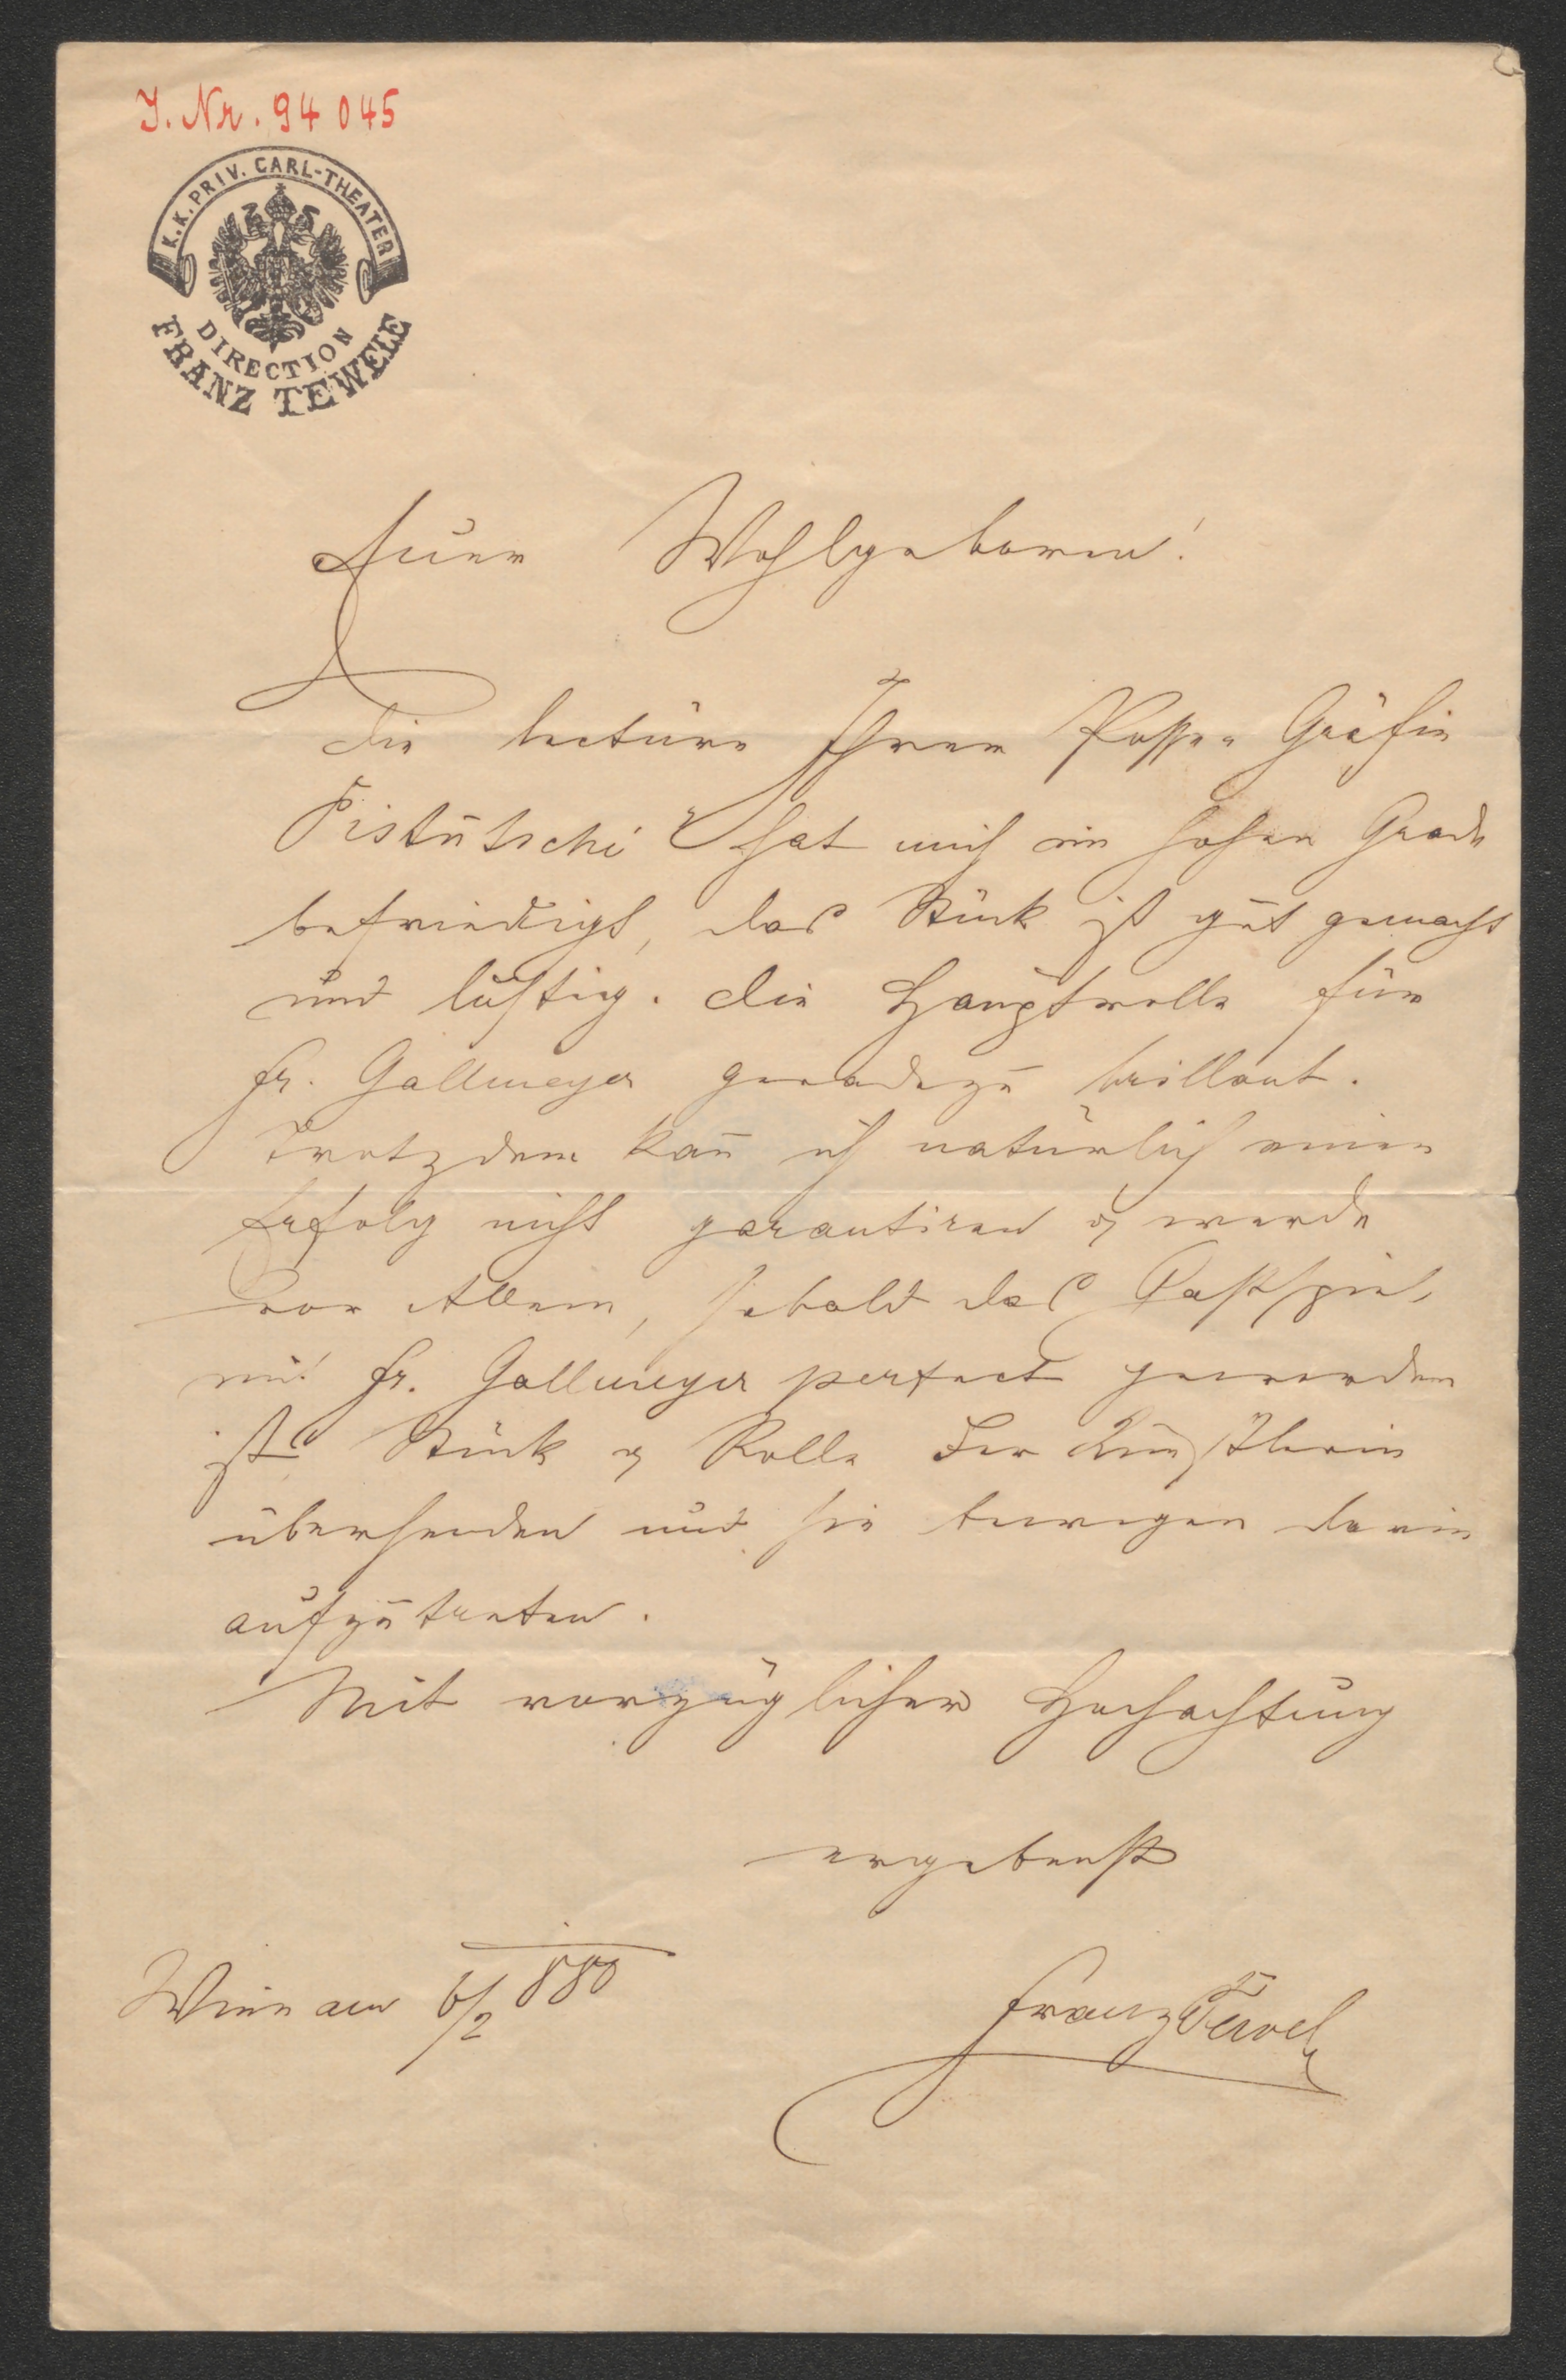 J. Nr. 94 045
K. K. PRIV. CARL-THEATER
DIRECTION
FRANZ TEWELE
Euer Wohlgeboren!
Die Lectüre Ihrer Posse „Gräfin
Pistutschi“ hat mich im hohen Grade
befriedigt, das Stück ist gut gemacht
und lustig. Die Hauptrolle für
Fr. Gallmeyer geradezu brillant.
Trotzdem kann̄ ich natürlich einen
Erfolg nicht garantiren & werde
vor Allem, sobald das Gastspiel
mit Fr. Gallmeyer perfect geworden
ist Stück & Rolle der Künstlerin
übersenden und sie bewegen darin
aufzutreten.
Mit vorzüglicher Hochachtung
ergebenst
Wien am 6/2 880
Franz Tewele